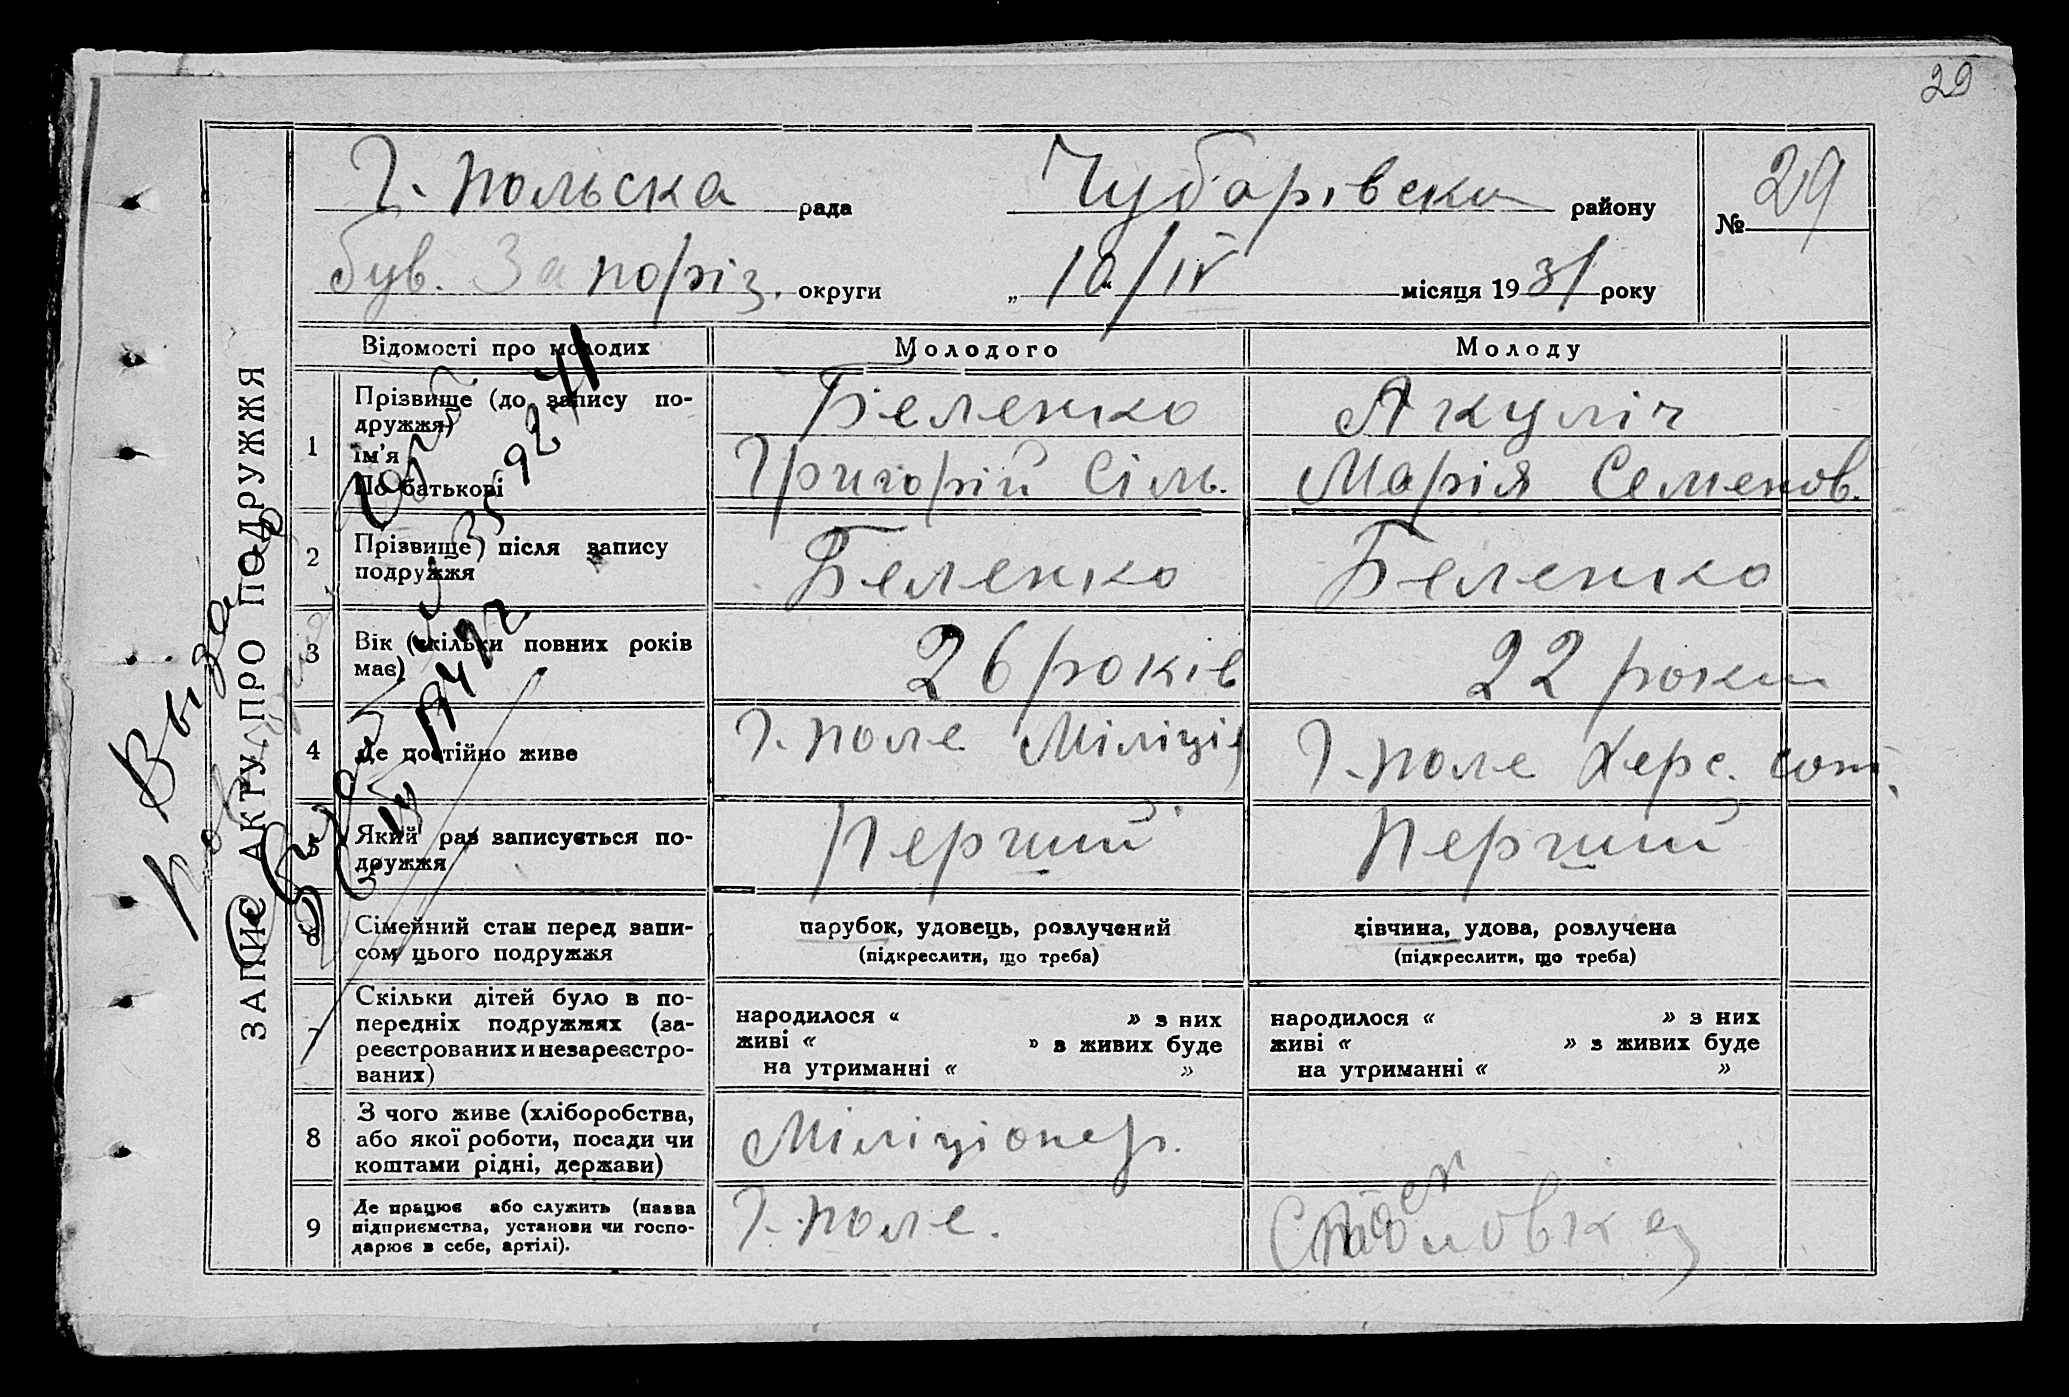 29
Г. Польска рада Чубарівськ району № 29
був. Запоріз. округи „10“/IV місяця 1931 року
ЗАПИС АКТУ ПРО ПОДРУЖЖЯ
Відомості про молодих Молодого Молоду
1 Прізвище (до запису по-
дружжя) Беленко Акуліч
ім'я
По батькові Григорій Сіль. Марія Семенов.
2 Прізвище після запису
подружжя Беленко Беленко
3 Вік (скільки повних років
має) 26 років 22 роки
4 Де постійно живе Г. поле Міліція Г. поле Херс. сот.
5 Який раз записується по-
дружжя Перший Перший
6 Сімейний стан перед запи-
сом цього подружжя
парубок, удовець, розлучений
(підкреслити, що треба)
дівчина, удова, розлучена
(підкреслити, що треба)
7 Скільки дітей було в по-
передніх подружжях (за-
реєстрованих и незареєстро-
ваних)
народилося « » з них
живі « » з живих буде
на утриманні « »
народилося « » з них
живі « » з живих буде
на утриманні « »
8 З чого живе (хліборобства,
або якої роботи, посади чи
коштами рідні, держави) Міліціонер.
9 Де працює або служить (назва
підприємства, установи чи госпо-
дарює в себе, артілі). Г. поле.